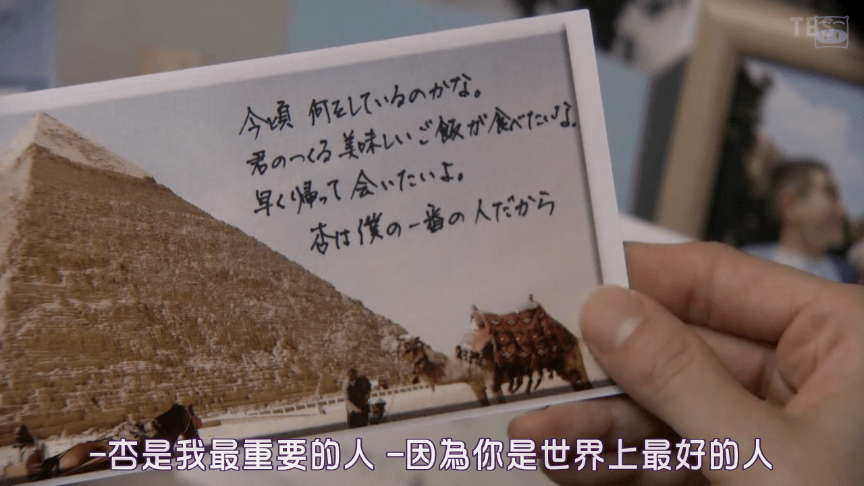 TBS
今頃 何をしているのかな。
君のつくる美味しいご飯が食べたいな。
早く帰って会いたいよ。
杏は僕の一番の人だから
-杏是我最重要的人 -因為你是世界上最好的人